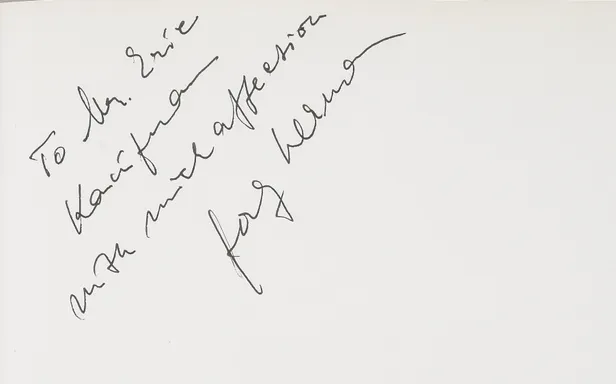 To Mr. Eric
Kaufman
with much affection